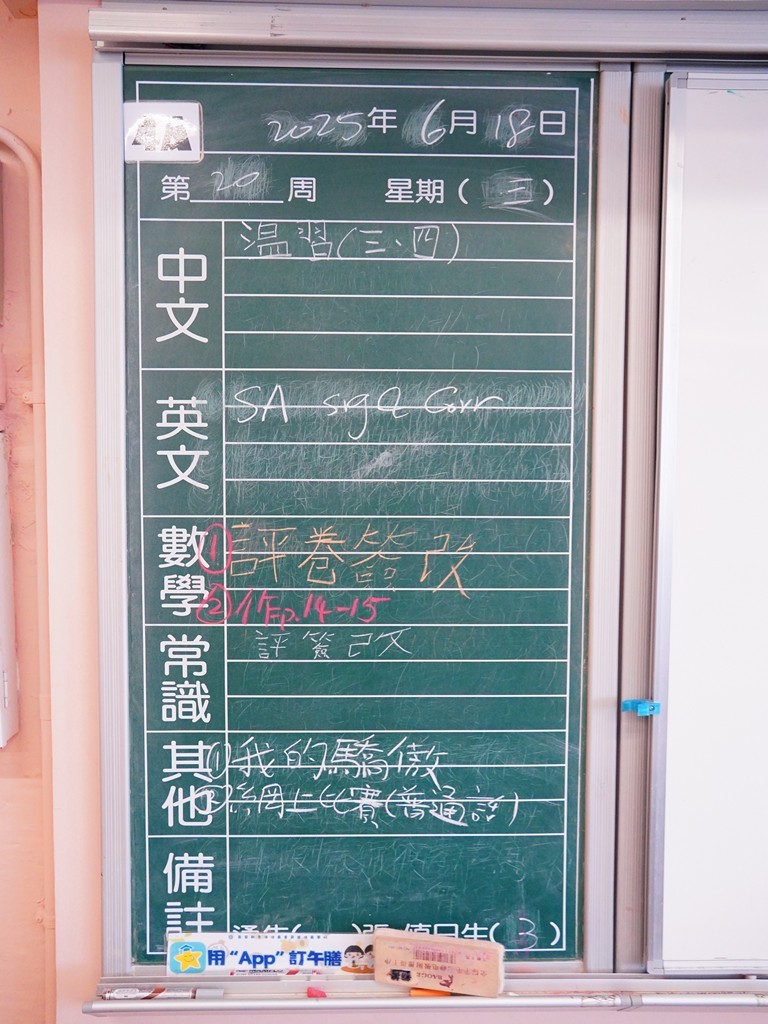 2025年6月18日
第20周 星期(三)
中文
温習(三、四)
英文
SA sig & Corr
數學
① 評卷簽改
② 作p.14-15
常識
評簽改
其他
① 我的驕傲
② 網上比賽(普通話)
備註
通告( )張 值日生(3)
用“App”訂午膳